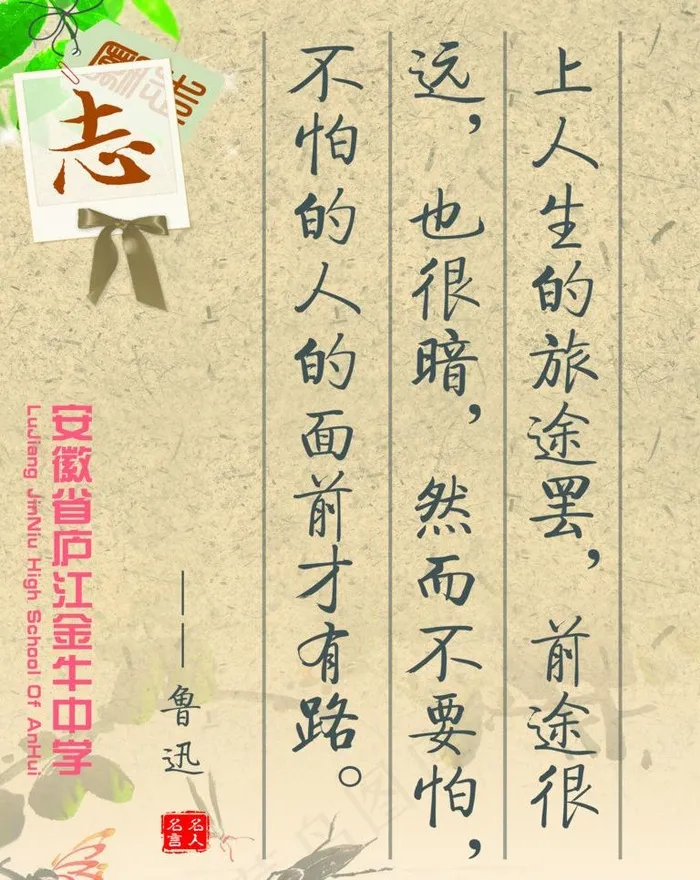 上人生的旅途罢，前途很
远，也很暗，然而不要怕，
不怕的人的面前才有路。
——鲁迅
名人
名言
志
安徽省庐江金牛中学
LuJiang JinNiu High School Of AnHui